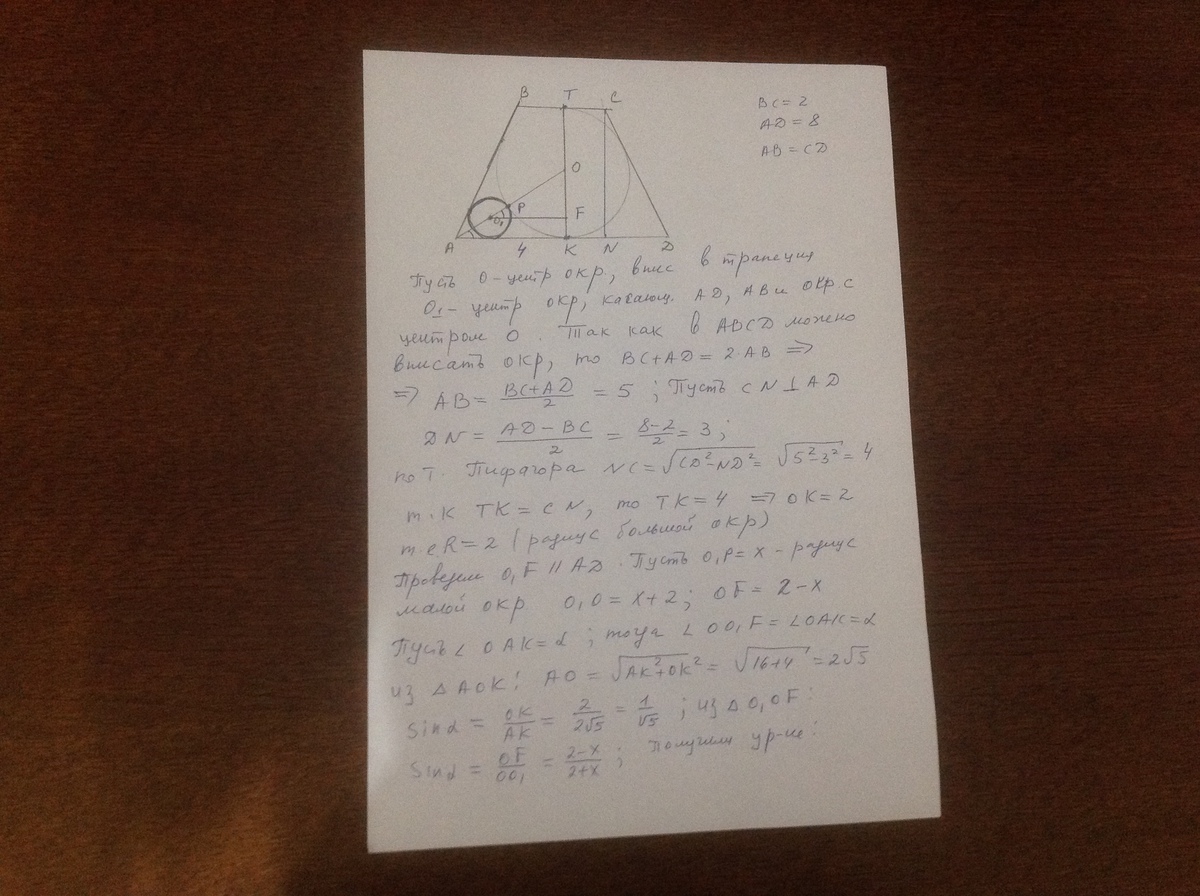 B T C
O
P
O₁ F
A 4 K N D
BC = 2
AD = 8
AB = CD
Пусть O - центр окр, впис в трапеция
O₁ - центр окр, касающ. AD, AB и окр. с
центром O. Так как в ABCD можно
вписать окр, то BC+AD = 2·AB ⇒
⇒ AB = (BC+AD)/2 = 5 ; Пусть CN ⊥ AD
DN = (AD-BC)/2 = (8-2)/2 = 3 ;
по т. Пифагора NC = √(CD²-ND²) = √(5²-3²) = 4
т.к TK = CN, то TK = 4 ⇒ OK = 2
т.е R = 2 (радиус большой окр)
Проведем O₁F // AD. Пусть O₁P = x - радиус
малой окр O₁O = x+2 ; OF = 2-x
Пусть ∠OAK = α ; тогда ∠OO₁F = ∠OAK = α
из △AOK: AO = √(AK²+OK²) = √(16+4) = 2√5
sinα = OK/AK = 2/(2√5) = 1/√5 ; из △O₁OF:
sinα = OF/OO₁ = (2-x)/(2+x) ; получили ур-ие: